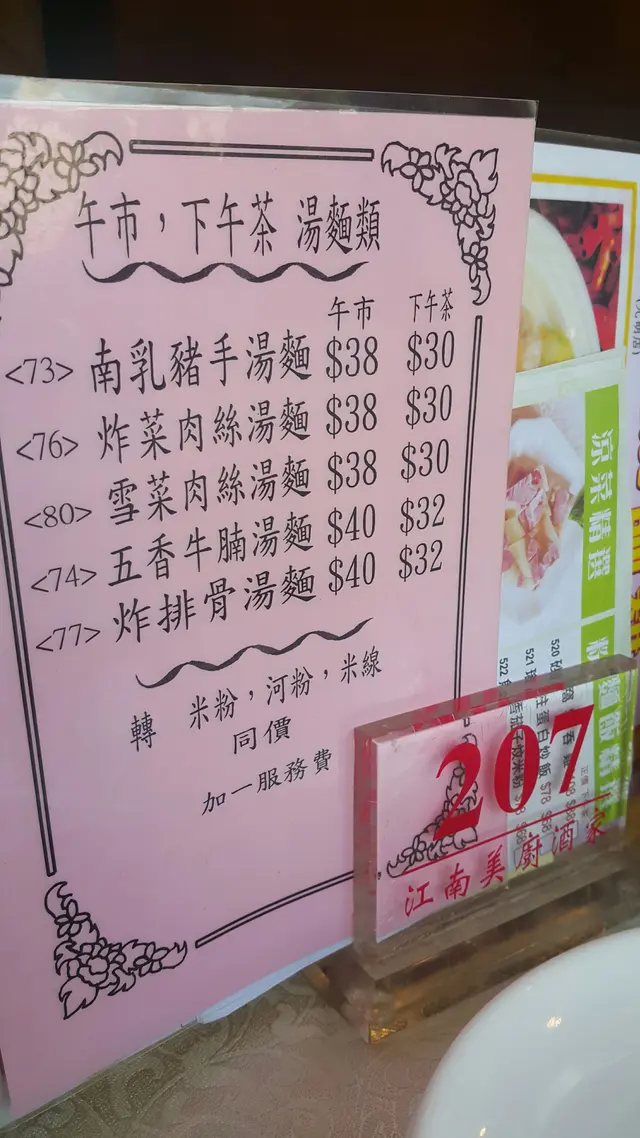 午市，下午茶 湯麵類
午市 下午茶
<73> 南乳豬手湯麵 $38 $30
<76> 炸菜肉絲湯麵 $38 $30
<80> 雪菜肉絲湯麵 $38 $30
<74> 五香牛腩湯麵 $40 $32
<77> 炸排骨湯麵 $40 $32
轉 米粉，河粉，米線
同價
加一服務費
涼菜精選
207
江南美廚酒家